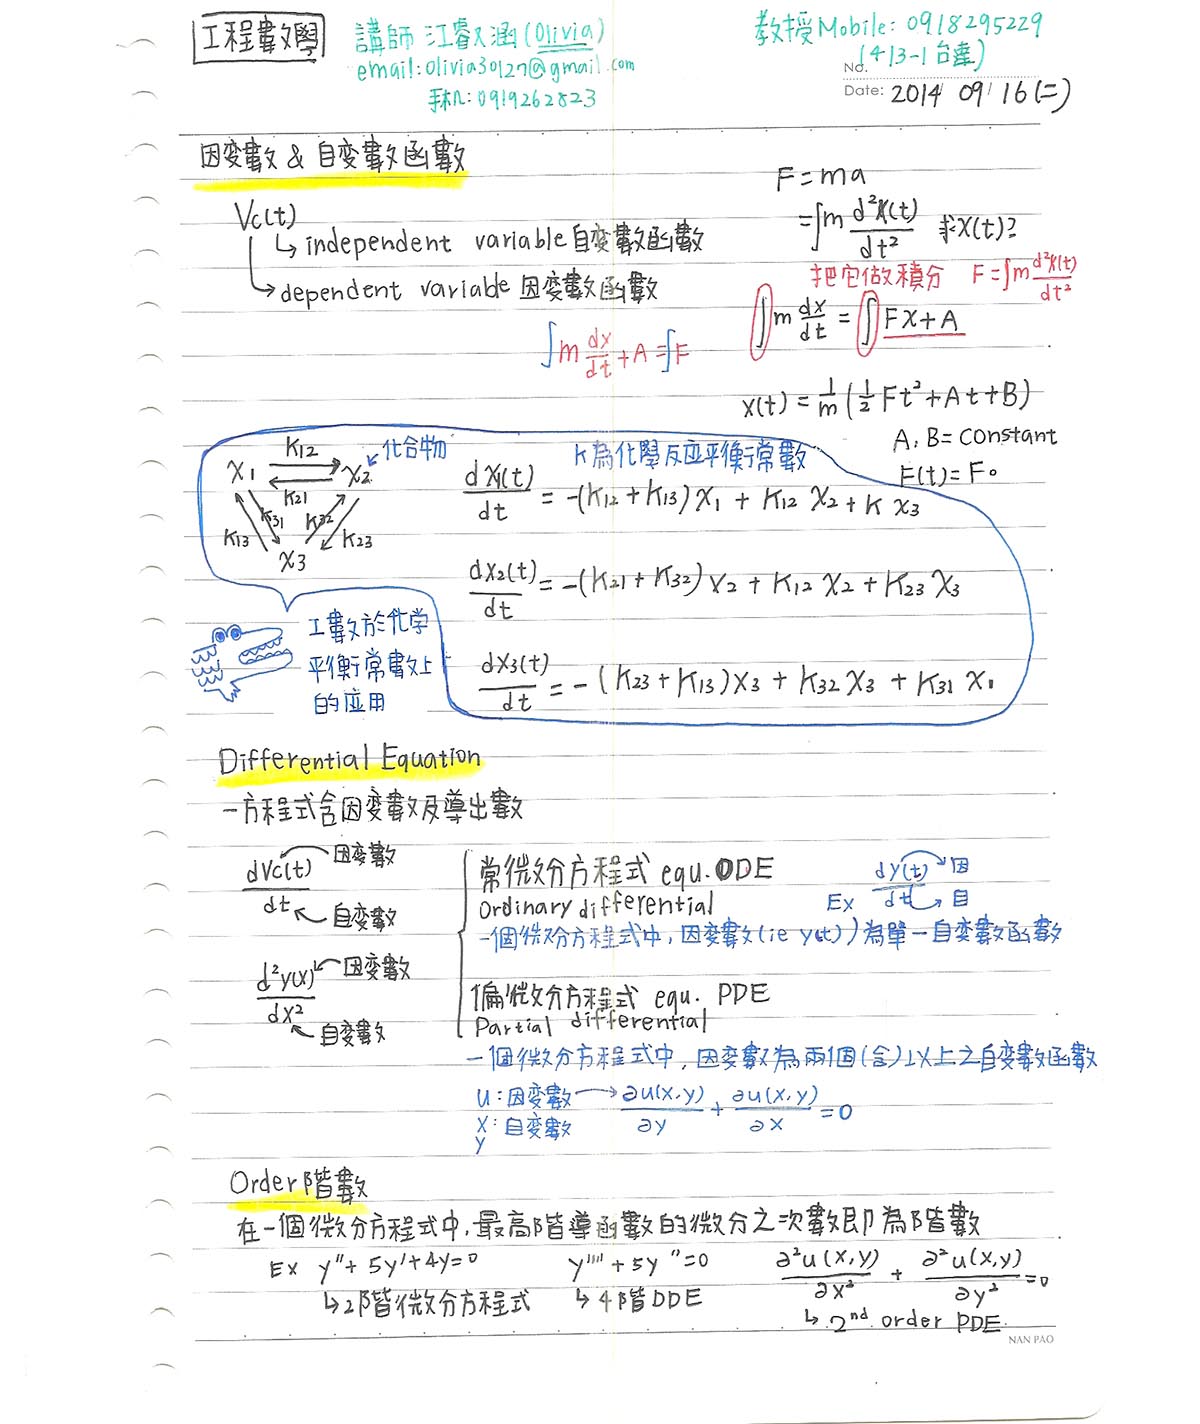 工程數學
講師 江睿涵(Olivia)
email:olivia30127@gmail.com
手机:0919262823
教授Mobile: 0918295229
(413-1 台達)
No.
Date: 2014 09/16(二)
因変數 & 自変數函數
Vc(t)
↳ independent variable 自変數函數
→ dependent variable 因変數函數
F=ma
=∫m d²X(t)/dt² 求X(t)?
把它做積分 F=∫m d²X(t)/dt²
∫m dx/dt = ∫FX+A
∫m dx/dt +A =∫F
X(t) = 1/m (1/2 Ft²+At+B)
A, B= constant
F(t)=F。
K12
X1 ⇄ X2 ← 化合物
K21
K31 K32
K13 K23
X3
K為化學反应平衡常數
dX1(t)/dt = -(K12+K13)X1 + K12 X2 + K X3
dX2(t)/dt = -(K21+K32)X2 + K12 X2 + K23 X3
dX3(t)/dt = -(K23+K13)X3 + K32 X3 + K31 X1
工數於化学
平衡常數上
的应用
Differential Equation
一方程式含因変數及導出數
dVc(t)/dt 因変數
自変數
d²y(x)/dx² 因変數
自変數
常微分方程式 equ. ODE
Ordinary differential
Ex dy(t)/dt 因
自
一個微分方程式中,因変數(ie y(t))為單一自変數函數
偏微分方程式 equ. PDE
Partial differential
一個微分方程式中,因変數為兩個(含)以上之自変數函數
u:因変數 → ∂u(x,y)/∂y + ∂u(x,y)/∂x =0
X:自変數
y
Order階數
在一個微分方程式中,最高階導函數的微分之次數即為階數
Ex y''+5y'+4y=0 y''''+5y''=0 ∂²u(x,y)/∂x² + ∂²u(x,y)/∂y² =0
↳2階微分方程式 ↳4階DDE ↳2nd order PDE
NAN PAO